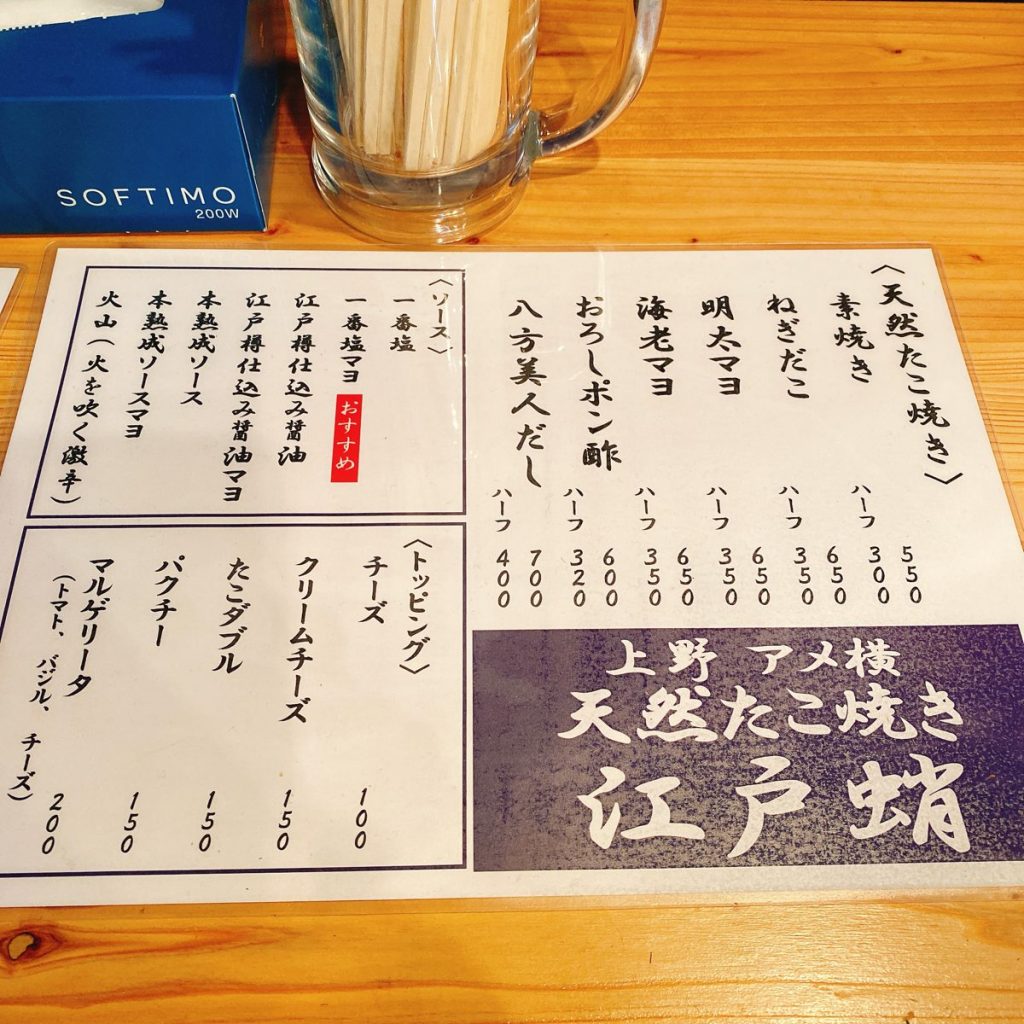 SOFTIMO
200W
〈天然たこ焼き〉
素焼き 550
ハーフ 300
ねぎだこ 650
ハーフ 350
明太マヨ 650
ハーフ 350
海老マヨ 650
ハーフ 350
おろしポン酢 600
ハーフ 320
八方美人だし 700
ハーフ 400
〈ソース〉
一番塩
一番塩マヨ おすすめ
江戸樽仕込み醤油
江戸樽仕込み醤油マヨ
本熟成ソース
本熟成ソースマヨ
火山(火を吹く激辛)
〈トッピング〉
チーズ 100
クリームチーズ 150
たこダブル 150
パクチー 150
マルゲリータ
(トマト、バジル、チーズ) 200
上野 アメ横
天然たこ焼き
江戸蛸